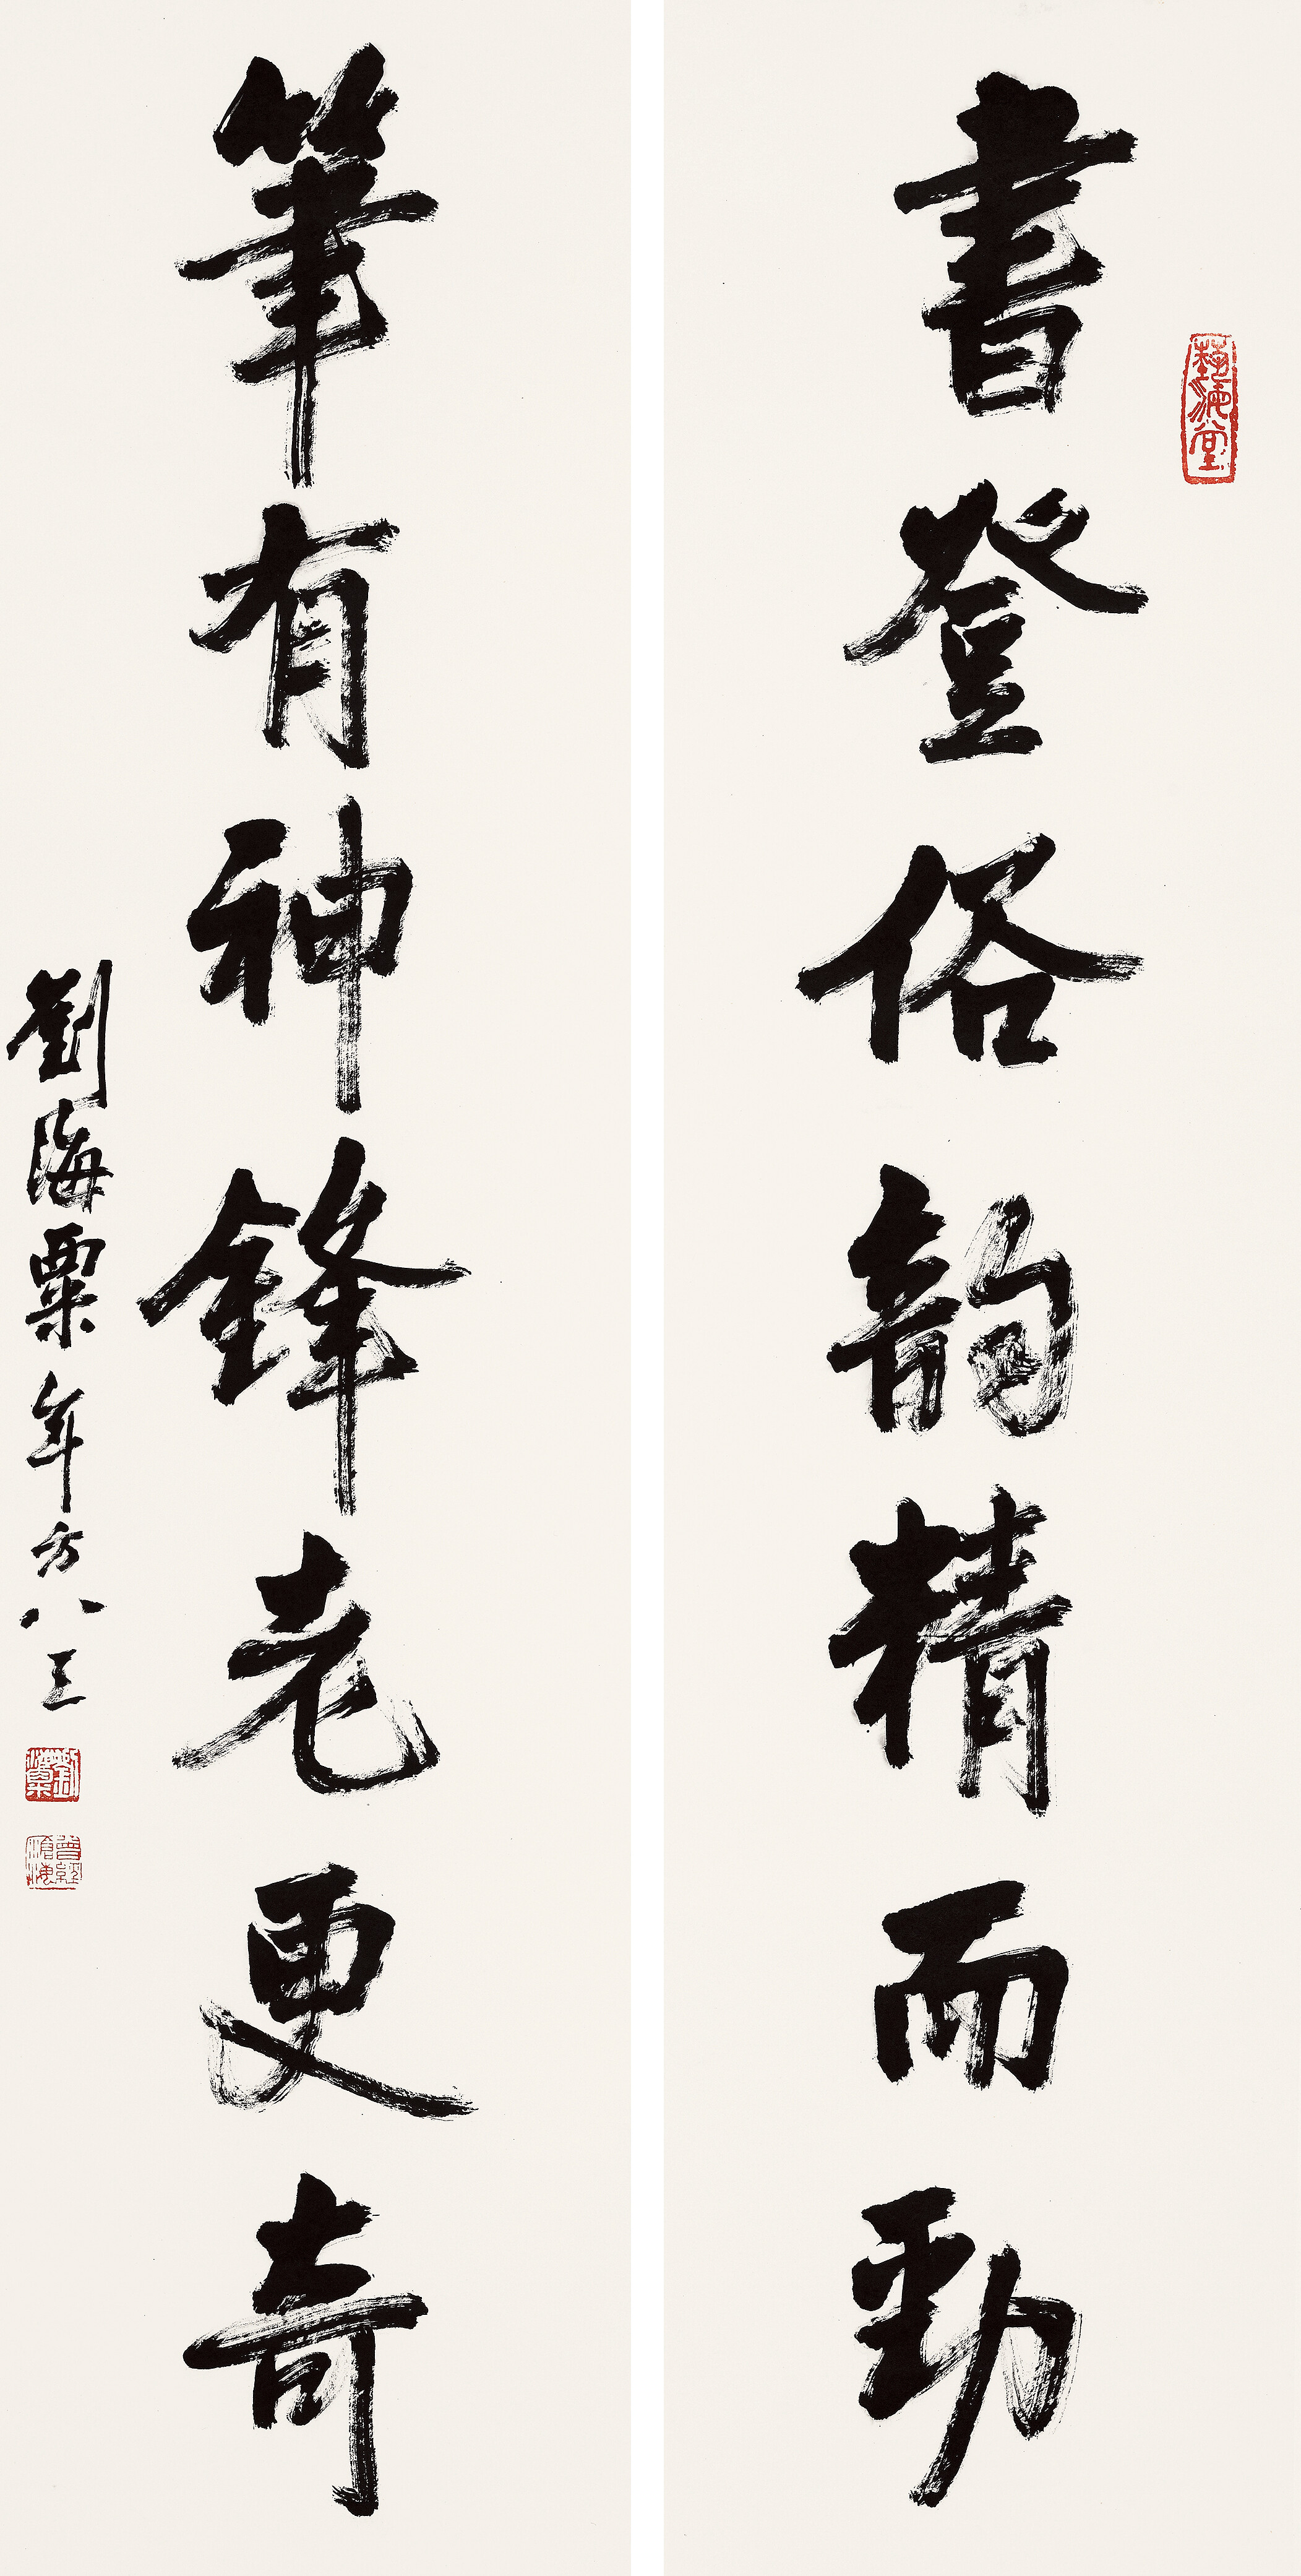 書登俗韵精而勁
藝海堂
筆有神鋒老更奇
劉海粟年方八三
劉海粟
曾經滄海